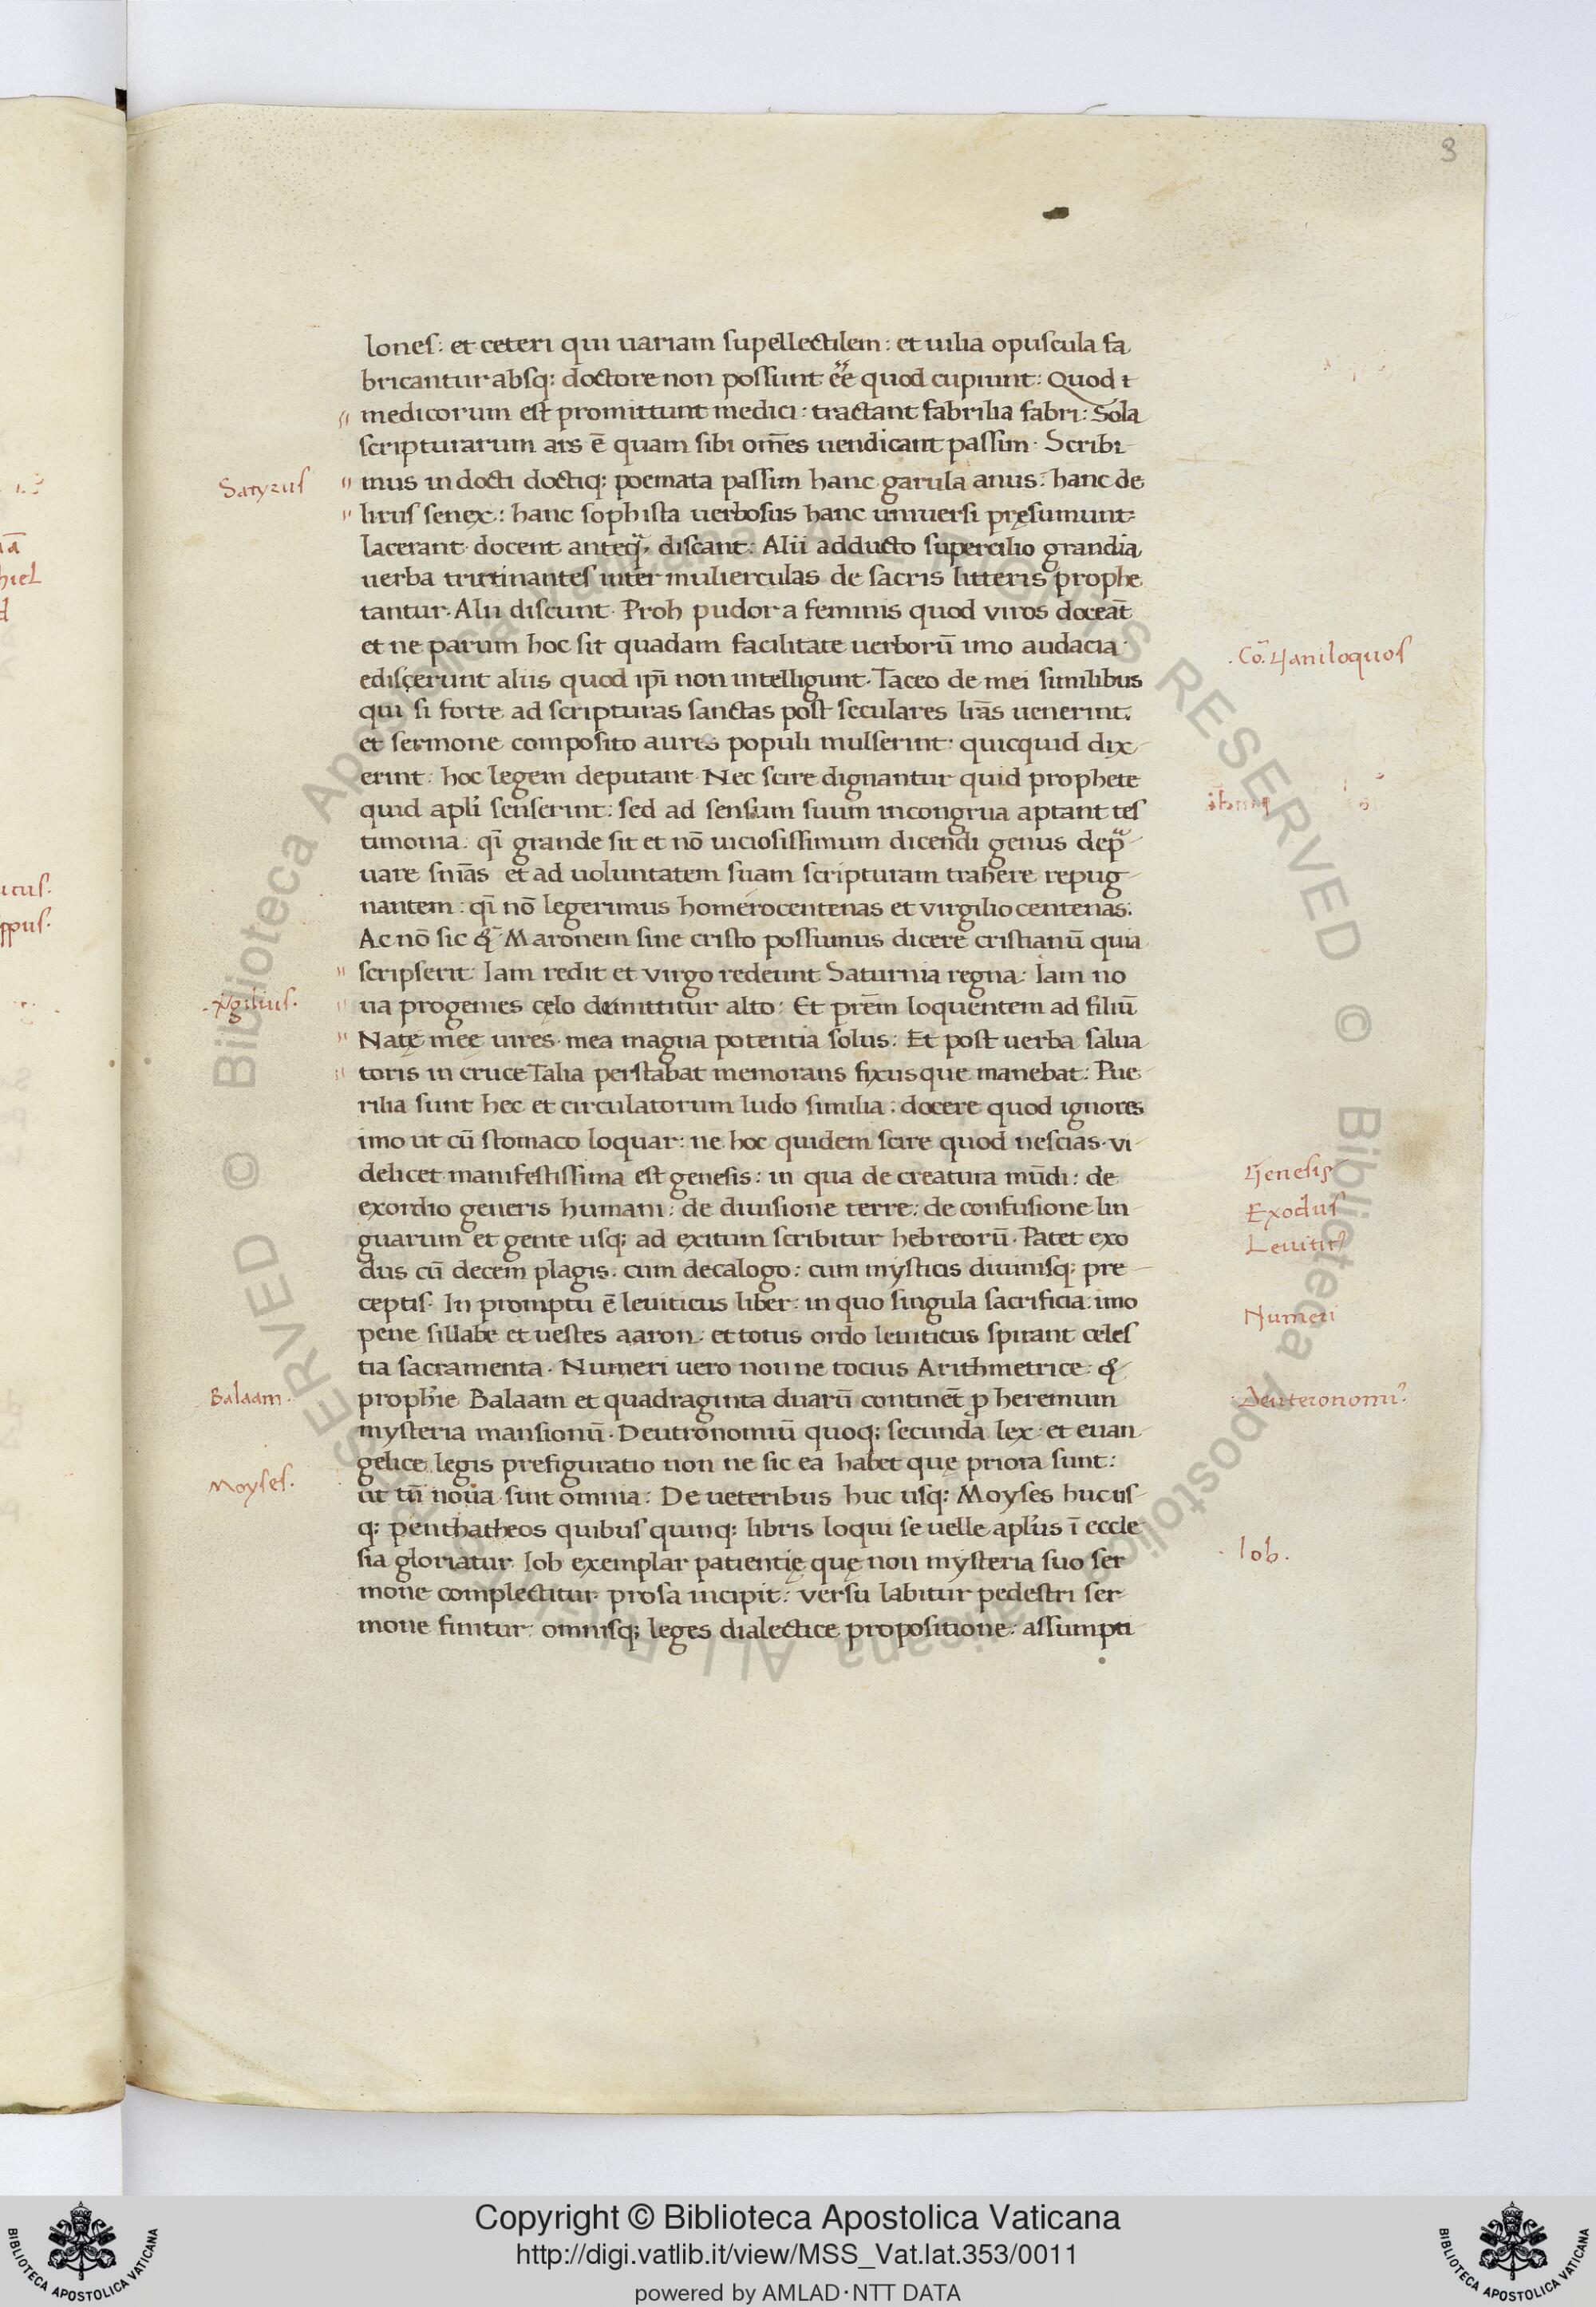 3
loneſ: et ceteri qui uariam ſupellectilem: et uilia opuſcula fa
bricantur absq: doctore non poſſunt ēē quod cupiunt: Quod ı
medicorum eſt promittunt medici: tractant fabrilia fabri: Sola
ſcripturarum ars ē quam ſibi om̄es uendicant paſſim· Scribi
Satyruſ
mus in docti doctiq: poemata paſſim hanc garula anus: hanc de
lirus ſenex: hanc ſophiſta uerboſus hanc uniuerſi pręſumunt:
lacerant docent anteq̃ diſcant: Alii adducto ſupercilio grandia
uerba trutinanteſ inter mulierculas de ſacris litteris prophe
tantur· Alii diſcunt· Proh pudor a feminis quod viros doceāt
et ne parum hoc ſit quadam facilitate uerborū imo audacia·
Cō. Uaniloquoſ
ediſcerunt aliis quod ip̄i non intelligunt· Taceo de mei ſimilibus
qui ſi forte ad ſcripturas ſanctas poſt ſeculares lr̄as uenerint.
et ſermone compoſito aures populi mulſerint: quicquid dix
erint: hoc legem deputant· Nec ſcire dignantur quid prophete
quid apl̄i ſenſerint: ſed ad ſenſum ſuum incongrua aptant teſ
timonia: qı̄ grande ſit et nō uicioſiſſimum dicendi genus dep̃
uare ſnı̄as et ad uoluntatem ſuam ſcripturam trahere repug
nantem: qı̄ nō legerimus homerocentenas et virgiliocentenas:
Ac nō ſic & Maronem ſine criſto poſſumus dicere criſtianū quia
ſcripſerit: Iam redit et virgo redeunt Saturnia regna: Iam no
Virgiliuſ.
ua progenies cęlo demittitur alto: Et prēm loquentem ad filiū
Natę mee uires mea magna potentia ſolus: Et poſt uerba ſalua
toris in cruce Talia perſtabat memorans fixusque manebat: Pue
rilia ſunt hec et circulatorum ludo ſimilia: docere quod ignores
imo ut cū ſtomaco loquar: ne hoc quidem ſcire quod neſcias· vi
delicet manifeſtiſſima eſt geneſis: in qua de creatura mūdi: de
Geneſis
exordio generis humani: de diuiſione terre: de confuſione lin
Exoduſ
guarum et gente uſq: ad exitum ſcribitur hebreorū· Patet exo
Leuitic9
dus cū decem plagis: cum decalogo: cum myſticis diuiniſq: pre
ceptiſ· In promptu ē leuiticus liber: in quo ſingula ſacrificia: imo
Numeri
pene ſillabe et ueſtes aaron: et totus ordo leuiticus ſpirant celeſ
tia ſacramenta· Numeri uero non ne tocius Arithmetrice: &
Balaam.
proph̄ie Balaam et quadraginta duarū continēt p heremum
Deuteronomi9.
myſteria manſionū· Deutronomiū quoq: ſecunda lex: et euan
gelice legis prefiguratio non ne ſic ea habet quę priora ſunt:
Moyſeſ.
ut tn̄ noua ſint omnia: De ueteribus huc uſq: Moyſes hucuſ
q: penthatheos quibuſ quinq: libris loqui ſe uelle apl̄us ı̄ eccle
ſia gloriatur Iob exemplar patientię quę non myſteria ſuo ſer
Iob.
mone complectitur proſa incipit: verſu labitur pedeſtri ſer
mone finitur: omniſq; leges dialectice propoſitione: aſſumpti
Copyright © Biblioteca Apostolica Vaticana
http://digi.vatlib.it/view/MSS_Vat.lat.353/0011
powered by AMLAD·NTT DATA